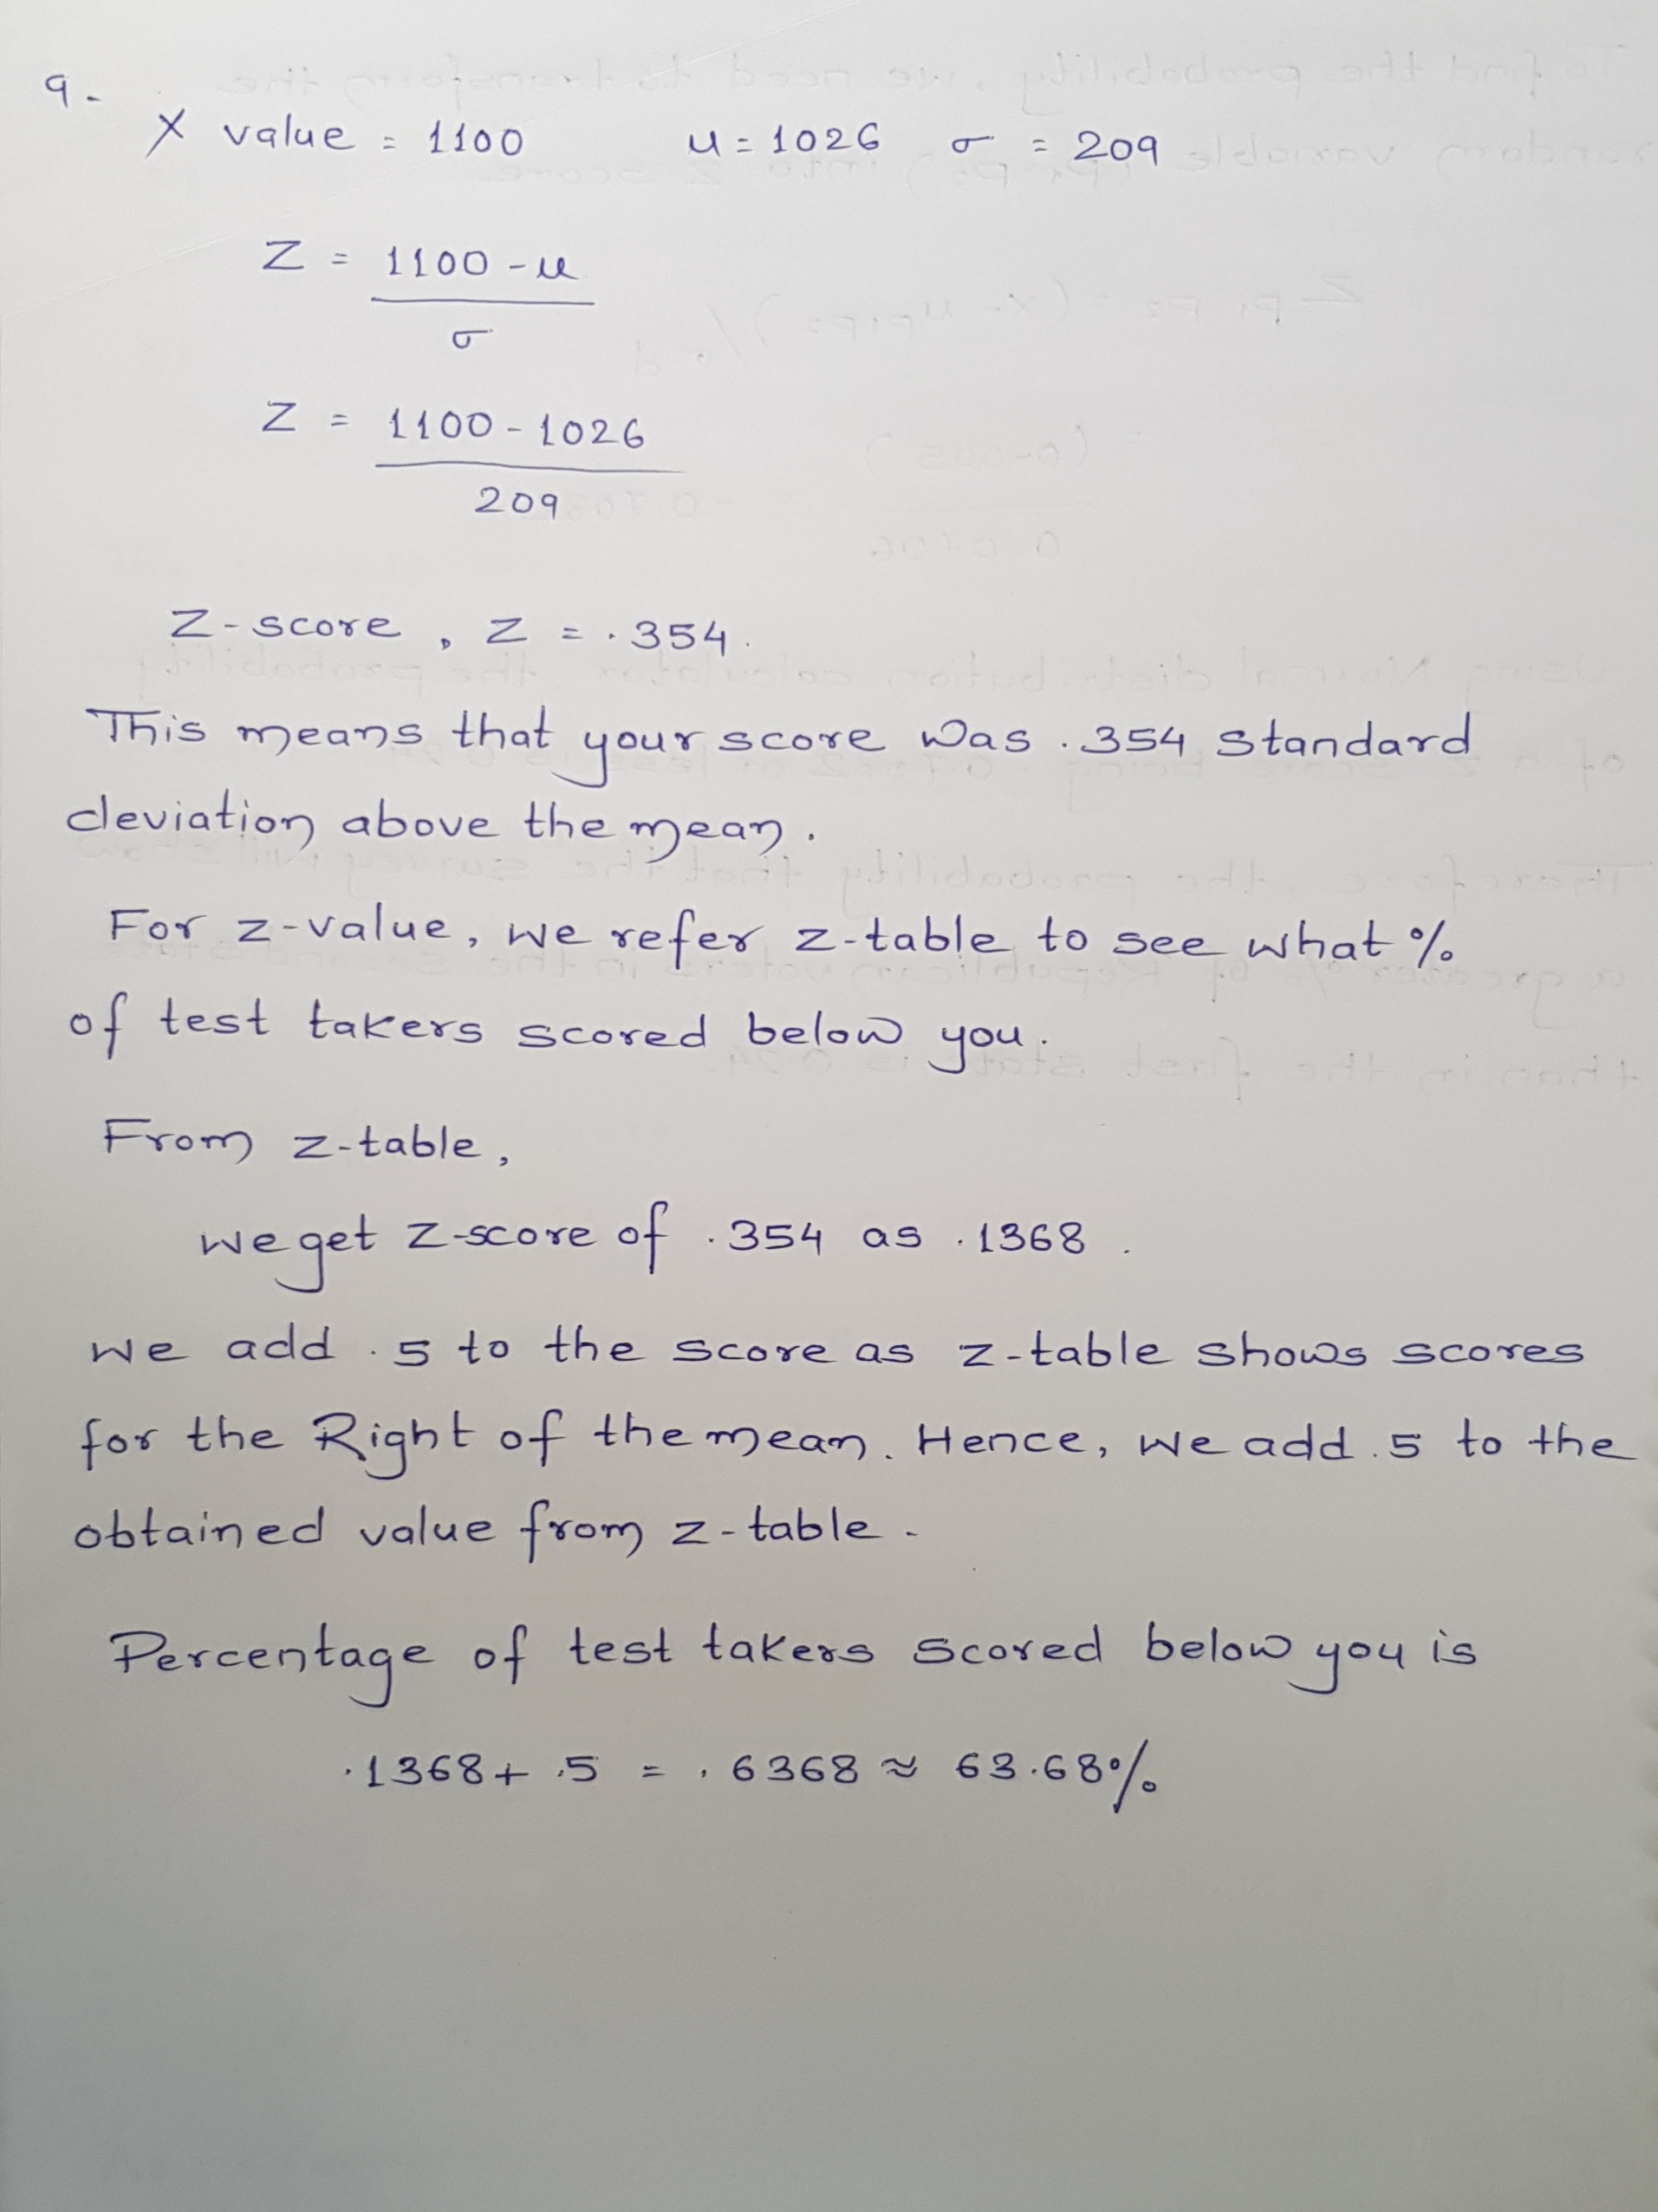 9.
X value = 1100 μ = 1026 σ = 209
Z = 1100 - μ
σ
Z = 1100 - 1026
209
Z-score, Z = .354.
This means that your score was .354 standard
deviation above the mean.
For z-value, we refer z-table to see what %
of test takers scored below you.
From z-table,
we get z-score of .354 as .1368.
We add .5 to the score as z-table shows scores
for the Right of the mean. Hence, we add .5 to the
obtained value from z-table.
Percentage of test takers scored below you is
.1368 + .5 = .6368 ≈ 63.68%